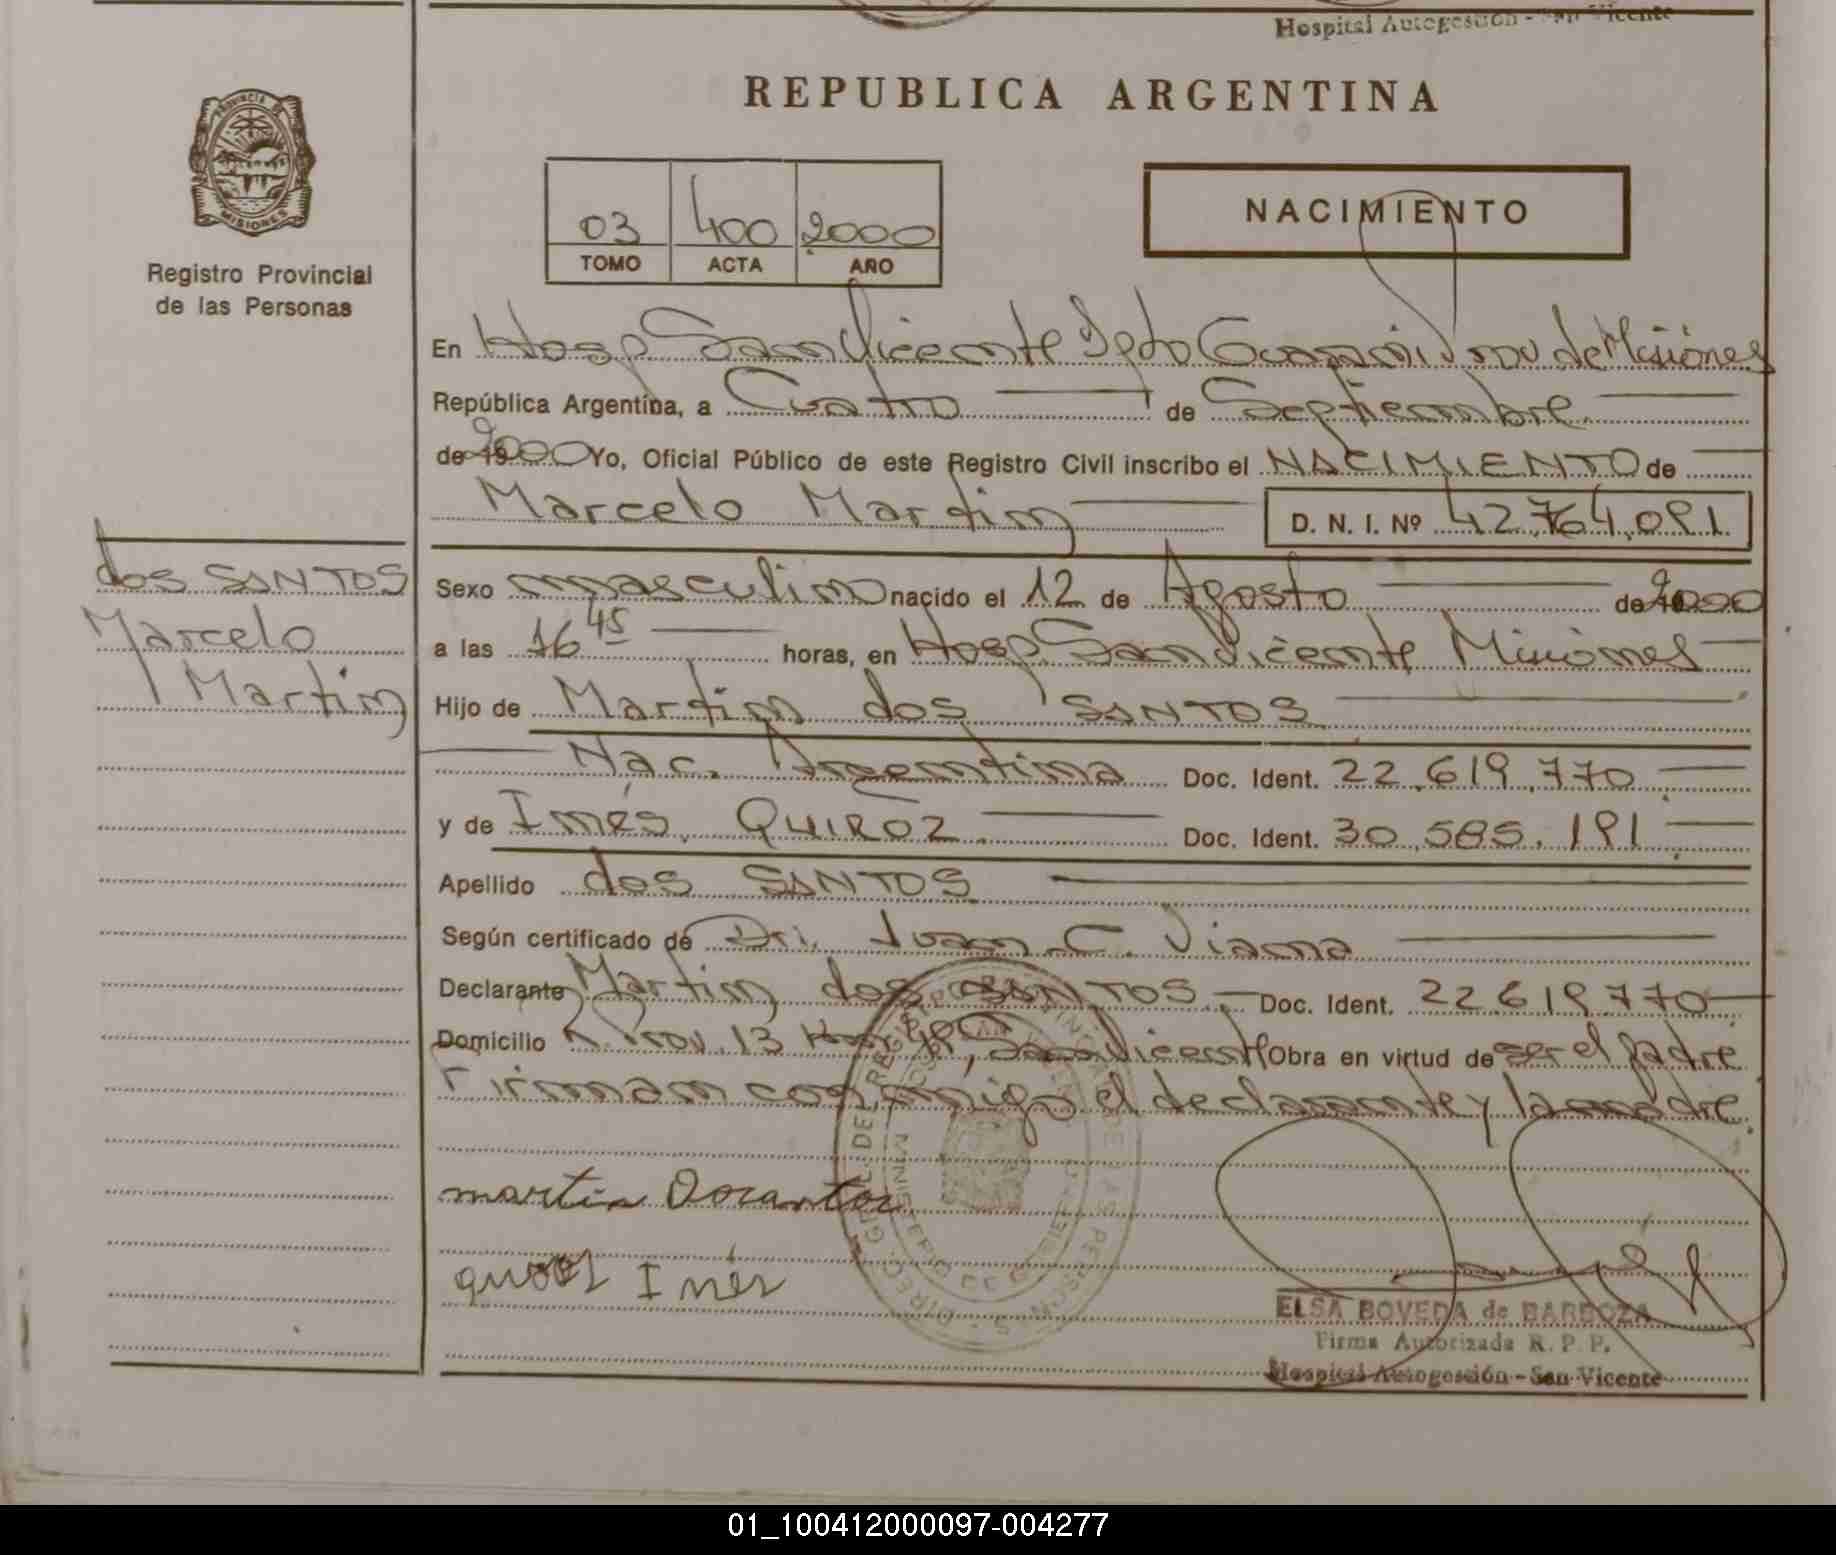 Hospital Autogestión - San Vicente
REPUBLICA ARGENTINA
PROVINCIA DE
MISIONES
Registro Provincial
de las Personas
03 400 2000
TOMO ACTA AÑO
NACIMIENTO
En Hosp San Vicente Dpto Guaraní Prov de Misiones
República Argentina, a Cuatro de Septiembre
de 2000 Yo, Oficial Público de este Registro Civil inscribo el NACIMIENTO de
Marcelo Martin D. N. I. Nº 42.764.091
dos SANTOS
Marcelo
Martin
Sexo masculino nacido el 12 de Agosto de 2000
a las 16 45 horas, en Hosp. San Vicente Misiones
Hijo de Martin dos SANTOS
Nac. Argentina Doc. Ident. 22.619.770
y de Inés QUIROZ Doc. Ident. 30.585.191
Apellido dos SANTOS
Según certificado de Dr. Juan C. Viana
Declarante Martin dos SANTOS Doc. Ident. 22.619.770
Domicilio R. Prov. 13 San Vicente Obra en virtud de ser el padre
Firman conmigo el declarante y la madre.
martin Dosantos
Inés
ELSA BOVEDA de BARBOZA
Firma Autorizada R. P. P.
Hospital Autogestión - San Vicente
01_100412000097-004277